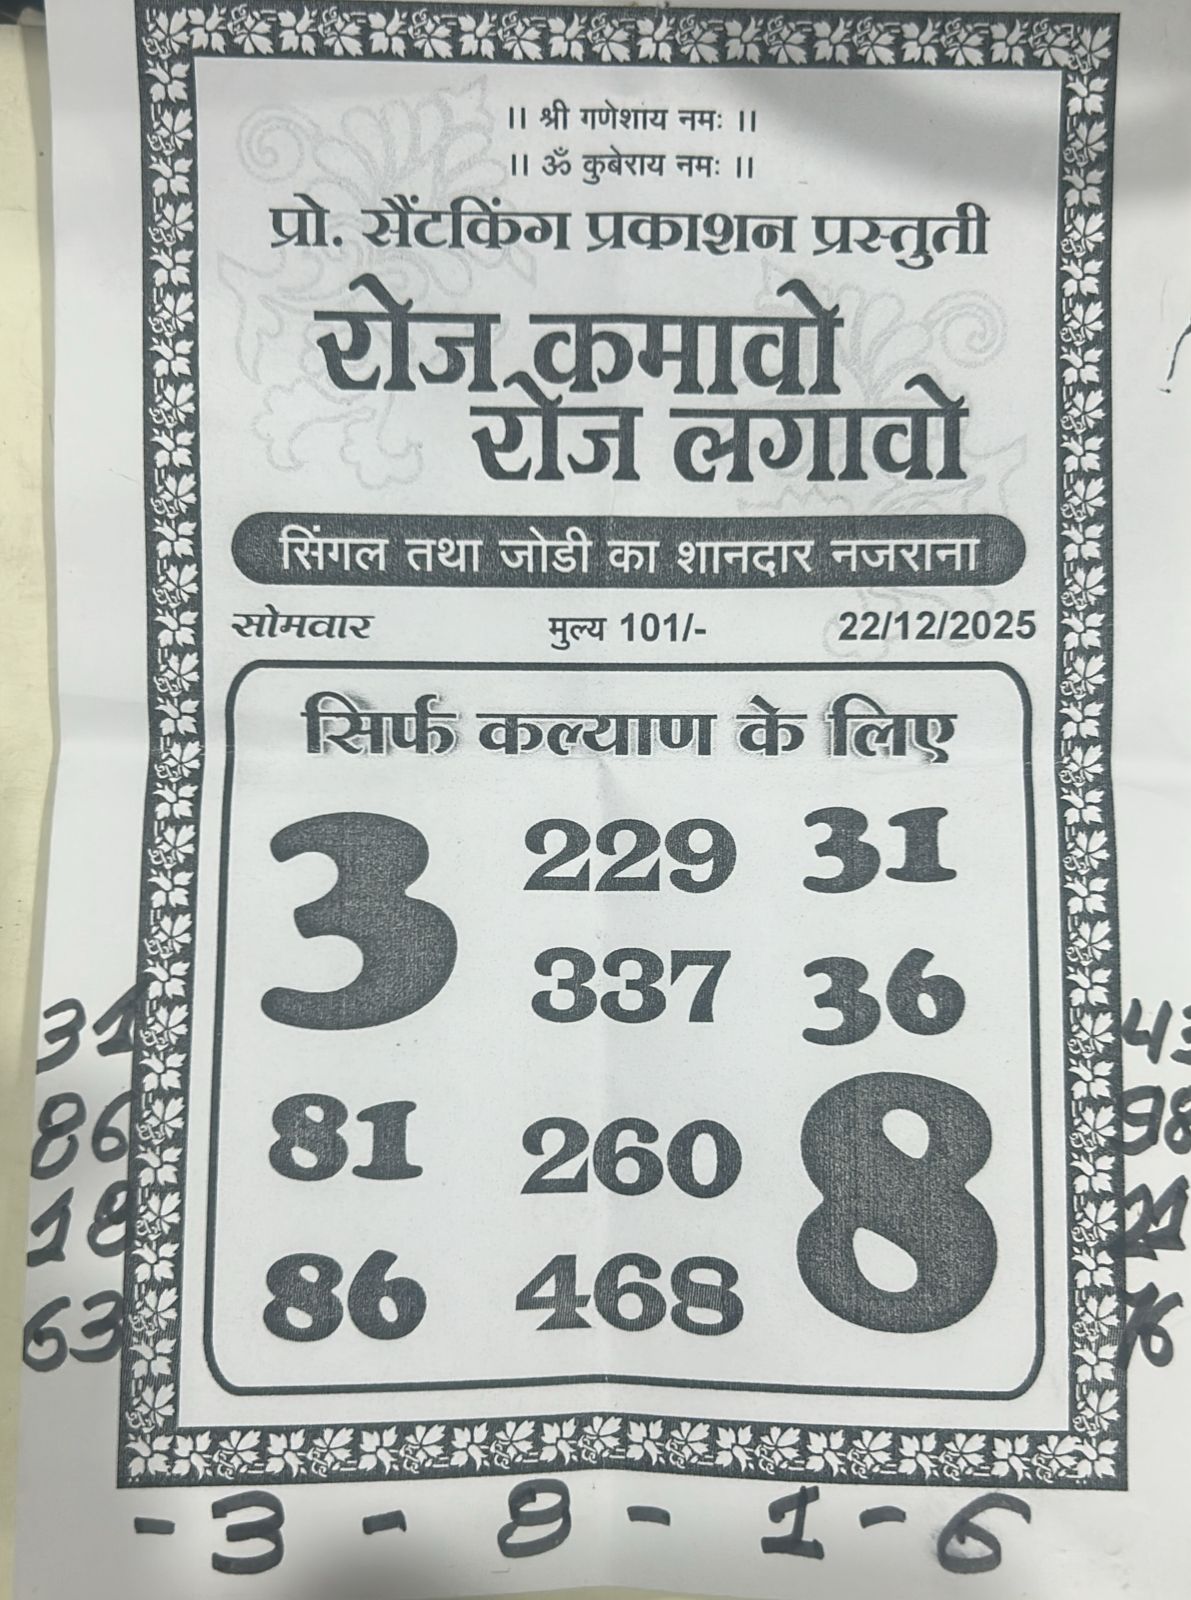 ।। श्री गणेशाय नमः ।।
।। ॐ कुबेराय नमः ।।
प्रो. सैंटकिंग प्रकाशन प्रस्तुती
रोज कमावो
रोज लगावो
सिंगल तथा जोडी का शानदार नजराना
सोमवार मुल्य 101/- 22/12/2025
सिर्फ कल्याण के लिए
3 229 31
337 36
81 260 8
86 468
31
86
18
63
43
98
- 3 - 8 - 1 - 6